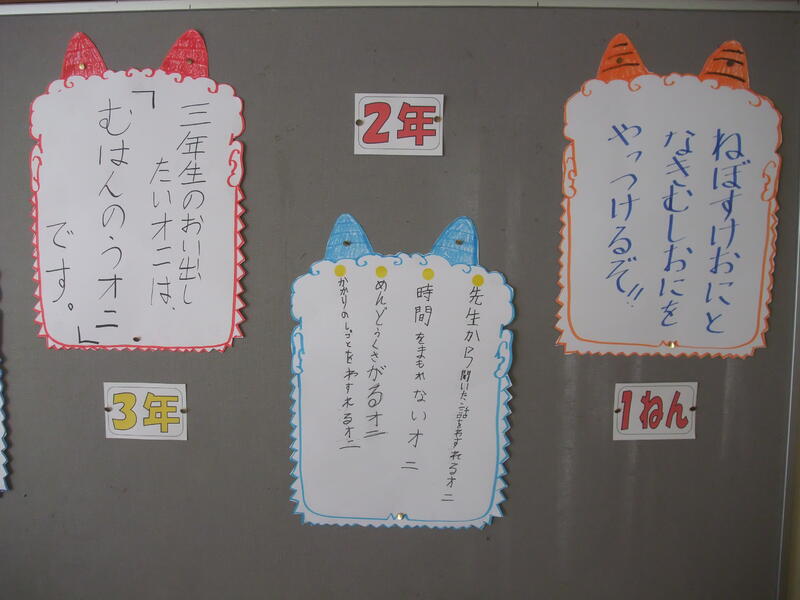 ねぼすけおにと
なきむしおにを
やっつけるぞ!!
1ねん
2年
先生から聞いたことをわすれるオニ
時間をまもれないオニ
めんどうくさがるオニ
かかりのしごとをわすれるオニ
三年生のおい出し
たいオニは、
「むはんのうオニ
です。」
3年